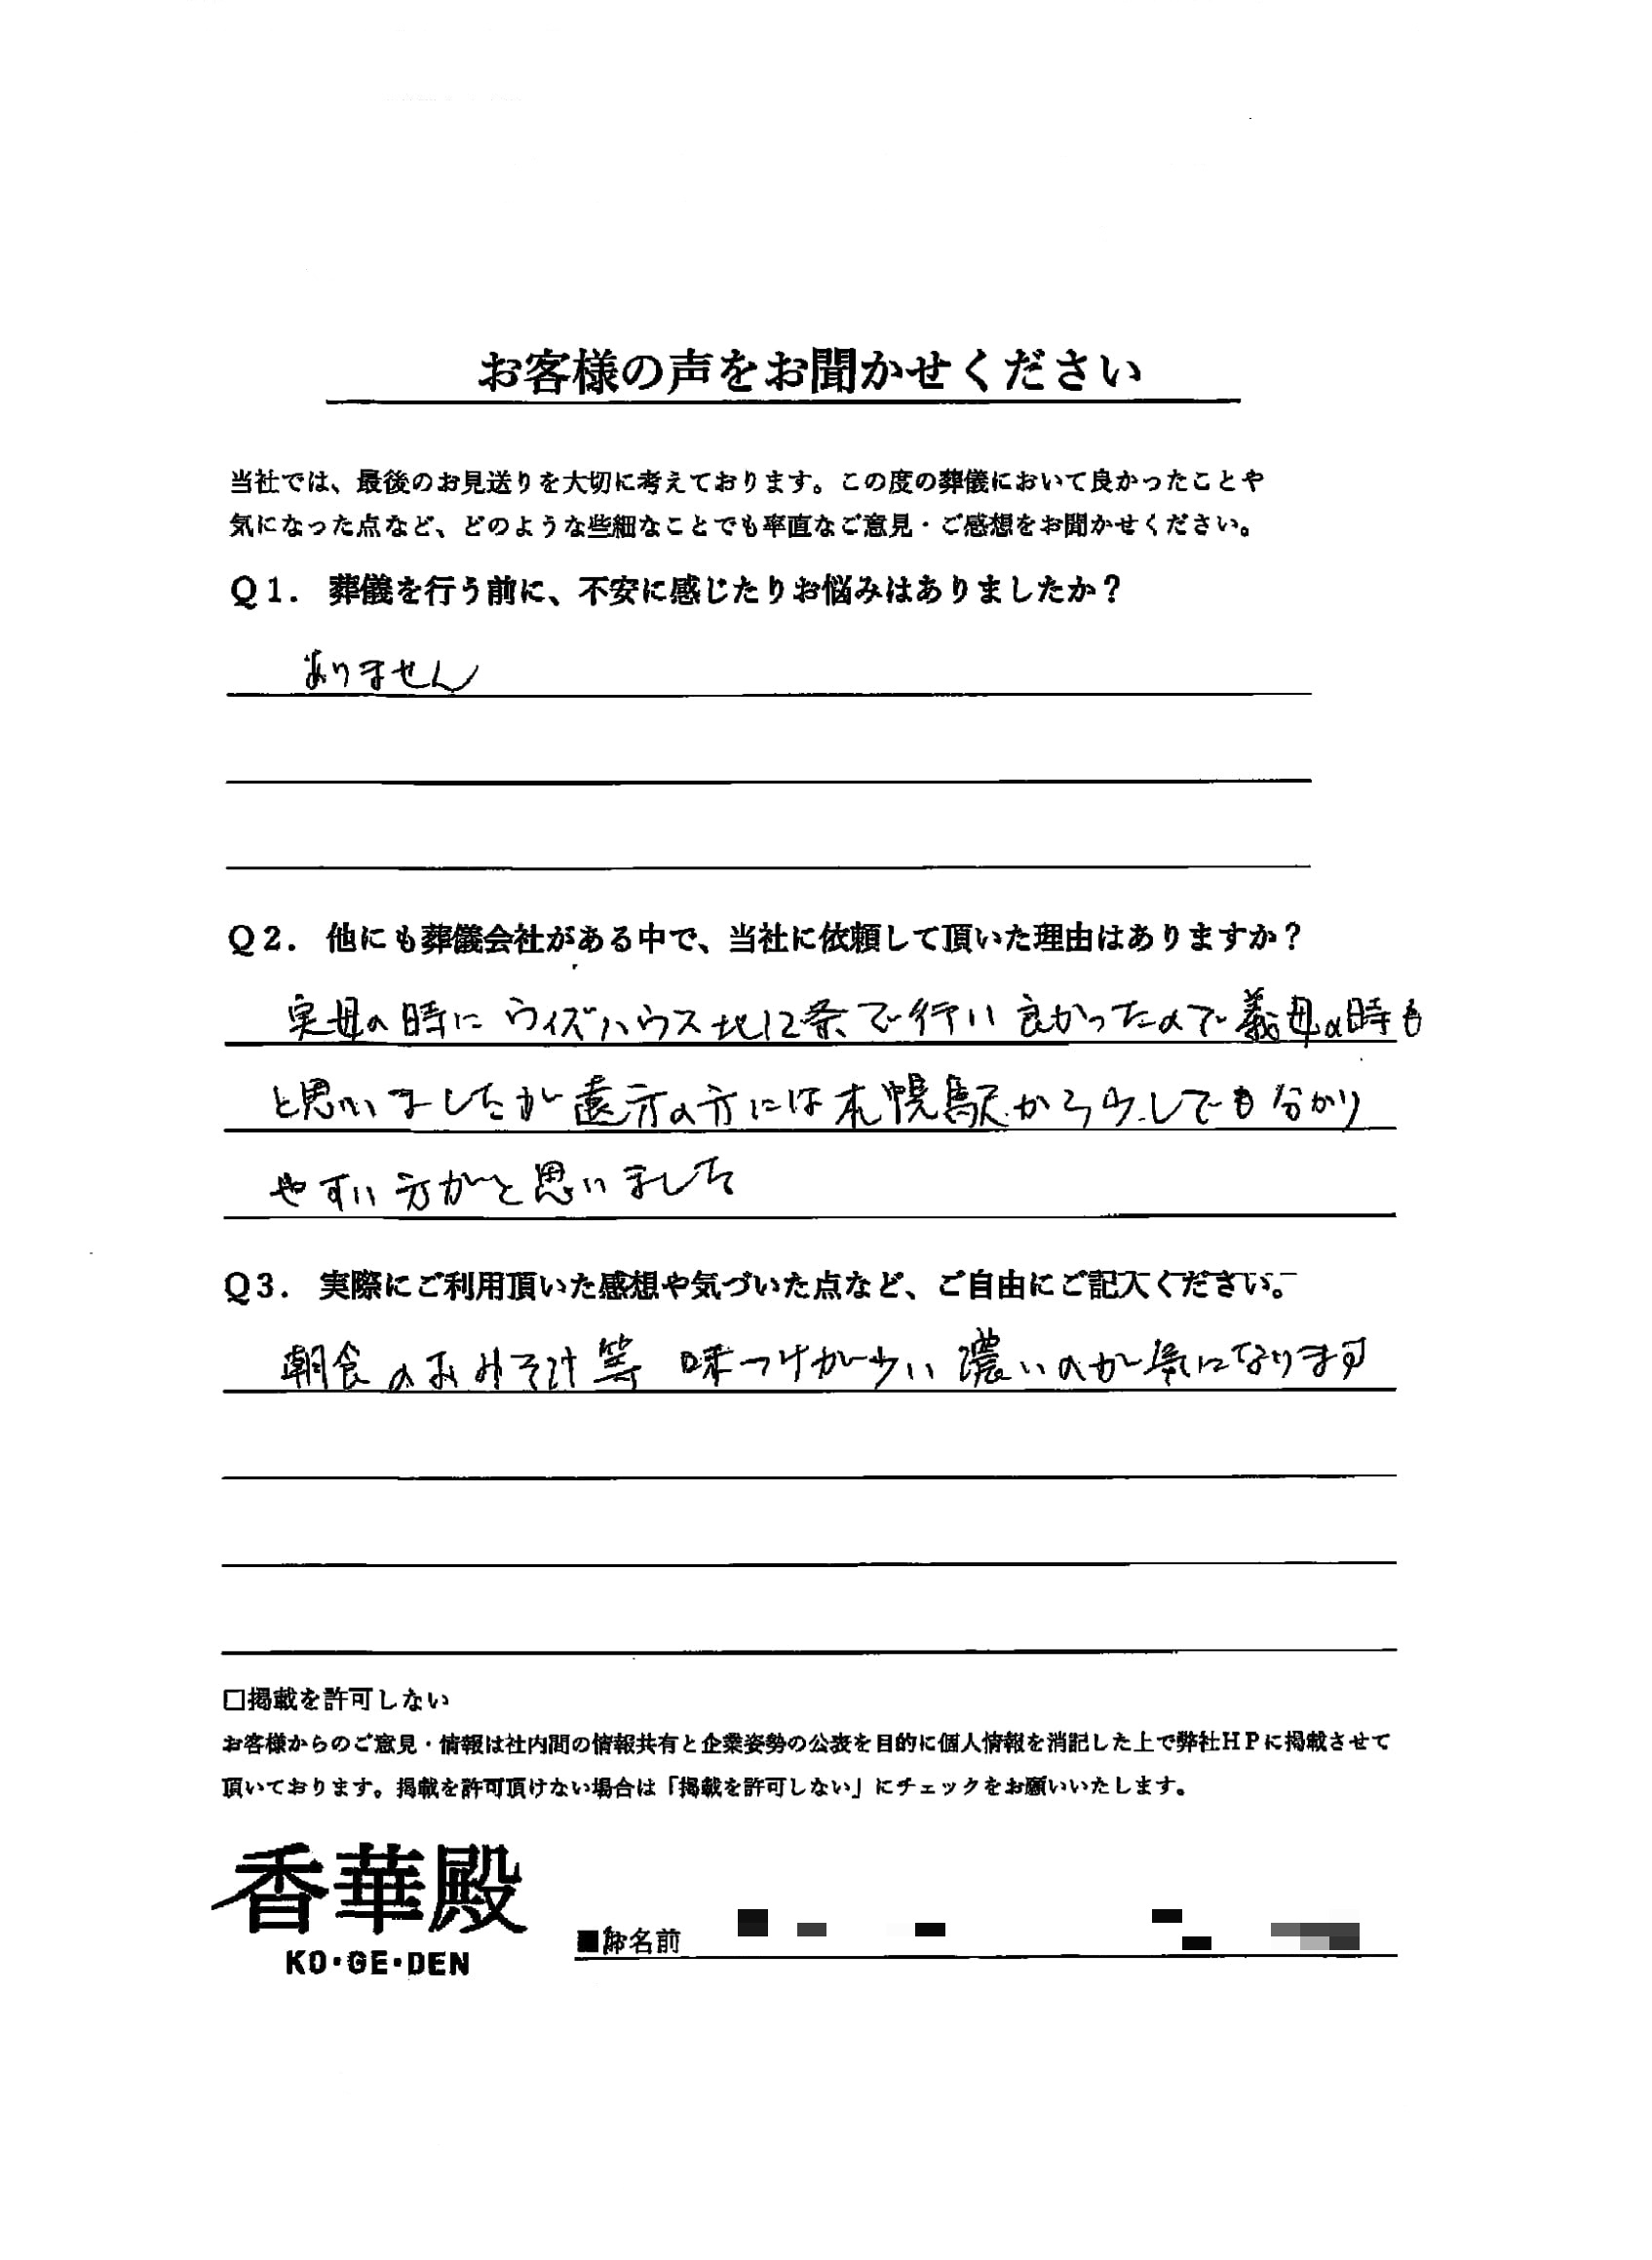 お客様の声をお聞かせください
当社では、最後のお見送りを大切に考えております。この度の葬儀において良かったことや
気になった点など、どのような些細なことでも率直なご意見・ご感想をお聞かせください。
Q1. 葬儀を行う前に、不安に感じたりお悩みはありましたか？
ありません
Q2. 他にも葬儀会社がある中で、当社に依頼して頂いた理由はありますか？
実母の時にウィズハウス北12条で行い良かったので義母の時も
と思いましたが遠方の方には札幌駅から少しでも分かり
やすい方がと思いました
Q3. 実際にご利用頂いた感想や気づいた点など、ご自由にご記入ください。
朝食のおみそ汁等 味つけが少い濃いのが気になります
□掲載を許可しない
お客様からのご意見・情報は社内間の情報共有と企業姿勢の公表を目的に個人情報を消記した上で弊社HPに掲載させて
頂いております。掲載を許可頂けない場合は「掲載を許可しない」にチェックをお願いいたします。
香華殿
KO・GE・DEN
■御名前